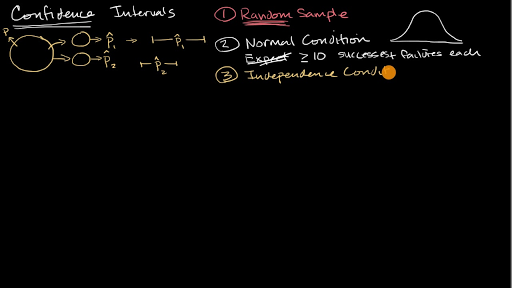 Confidence Intervals
P
p̂₁ p̂₁
p̂₂ p̂₂
① Random Sample
② Normal Condition
Expect ≥ 10 successes + failures each
③ Independence Condi